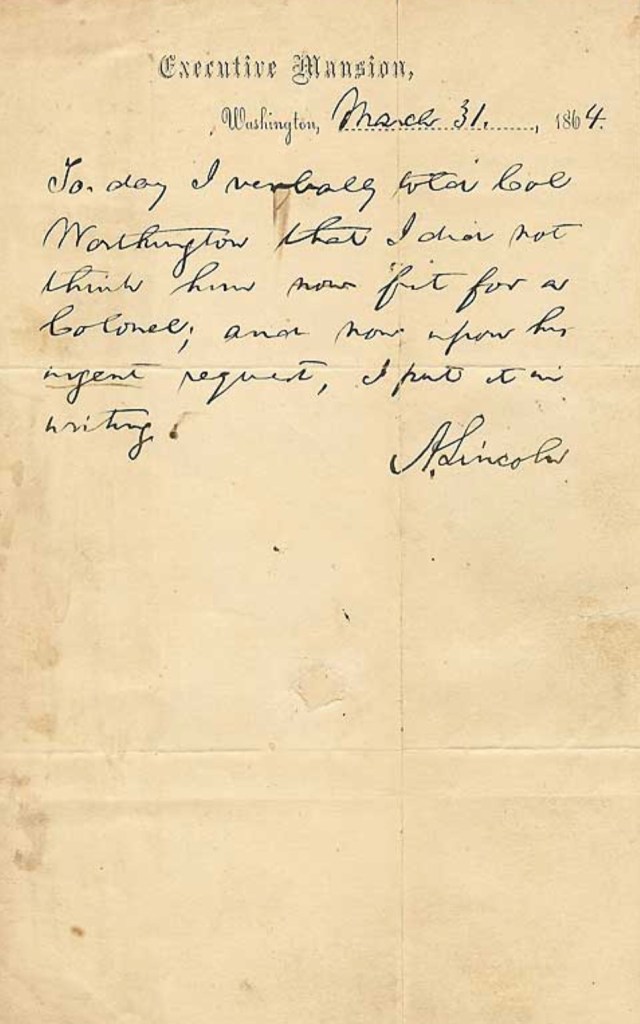 Executive Mansion,
Washington, March 31., 1864.
To-day I verbally told Col
Worthington that I did not
think him now fit for a
Colonel; and now upon his
urgent request, I put it in
writing.
A. Lincoln